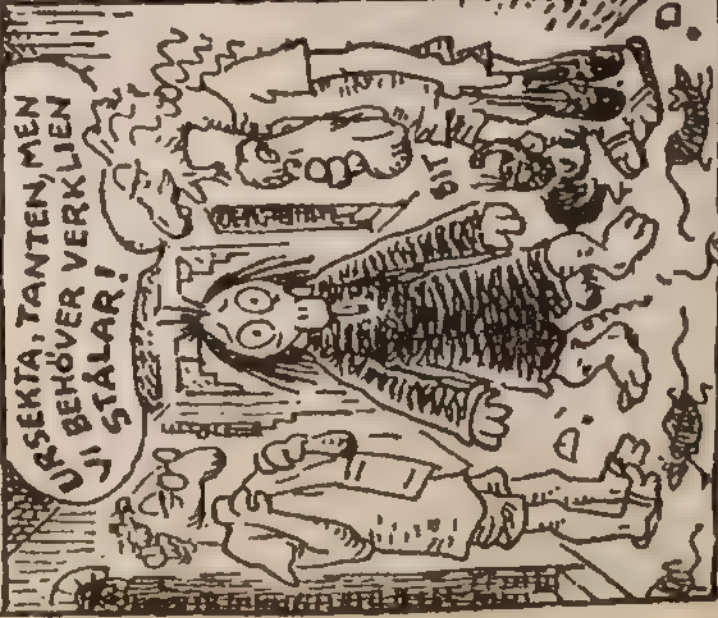 URSEKTA, TANTEN, MEN
VI BEHÖVER VERKLIEN
STÅLAR!
BIT